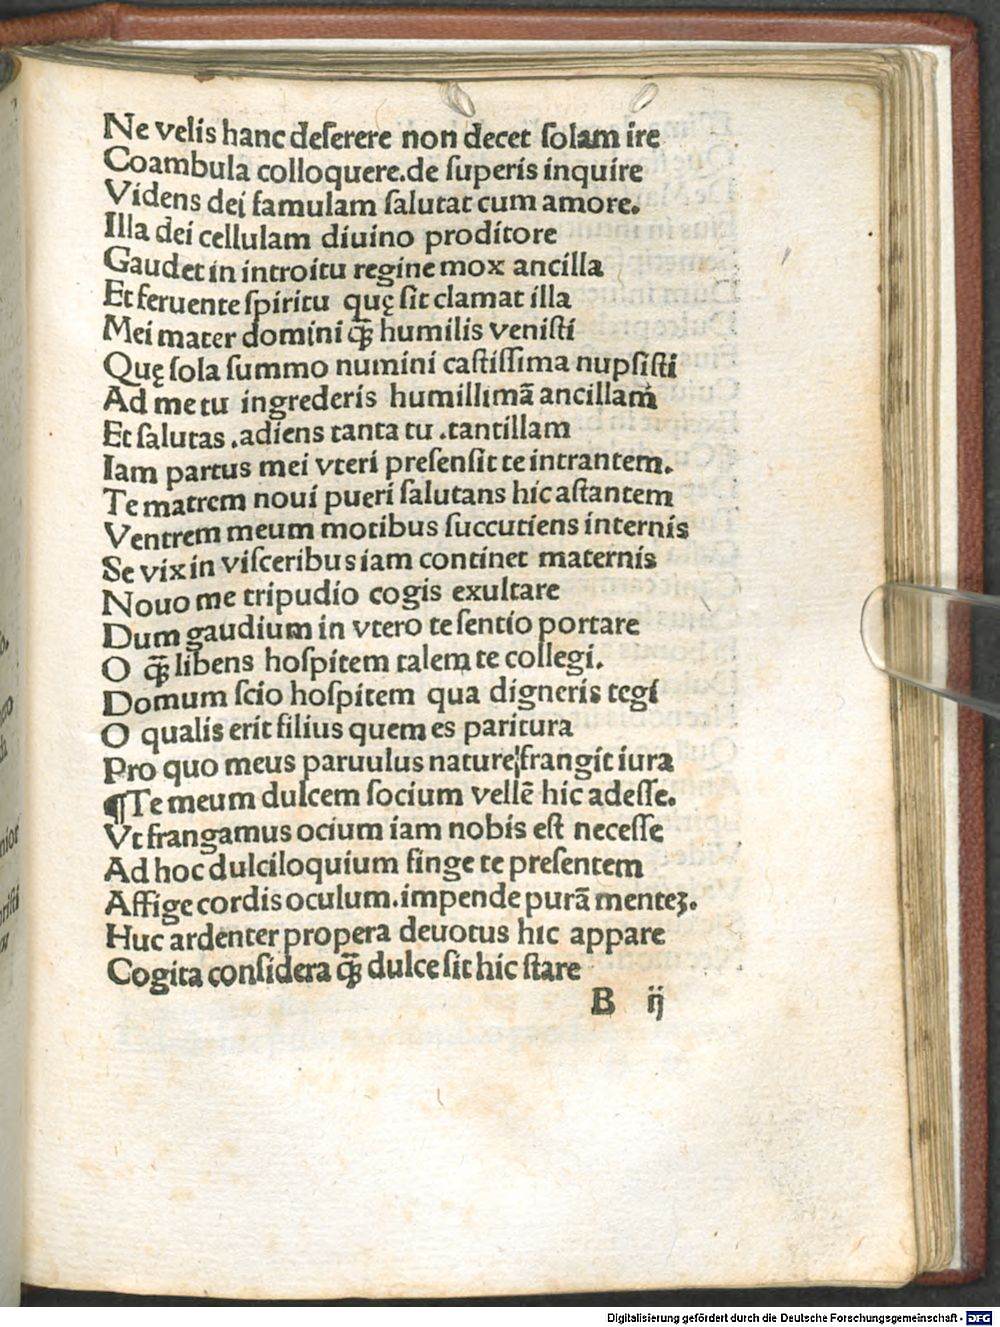 Ne velis hanc deſerere non decet ſolam ire
Coambula colloquere.de ſuperis inquire
Videns dei famulam ſalutat cum amore.
Illa dei cellulam diuino proditore
Gaudet in introitu regine mox ancilla
Et feruente ſpiritu quę ſit clamat illa
Mei mater domini q̄ꝫ humilis veniſti
Quę ſola ſummo numini caſtiſſima nupſiſti
Ad me tu ingrederis humillimā ancillam
Et ſalutas .adiens tanta tu .tantillam
Iam partus mei vteri preſenſit te intrantem.
Te matrem noui pueri ſalutans hic aſtantem
Ventrem meum motibus ſuccutiens internis
Se vix in viſceribus iam continet maternis
Nouo me tripudio cogis exultare
Dum gaudium in vtero te ſentio portare
O q̄ꝫ libens hoſpitem talem te collegi.
Domum ſcio hoſpitem qua digneris tegi
O qualis erit filius quem es paritura
Pro quo meus paruulus nature frangit iura
¶Te meum dulcem ſocium vellē hic adeſſe.
Vt frangamus ocium iam nobis eſt neceſſe
Ad hoc dulciloquium finge te preſentem
Affige cordis oculum.impende purā menteꝫ.
Huc ardenter propera deuotus hic appare
Cogita conſidera q̄ꝫ dulce ſit hic ſtare
B ij
Digitalisierung gefördert durch die Deutsche Forschungsgemeinschaft - DFG